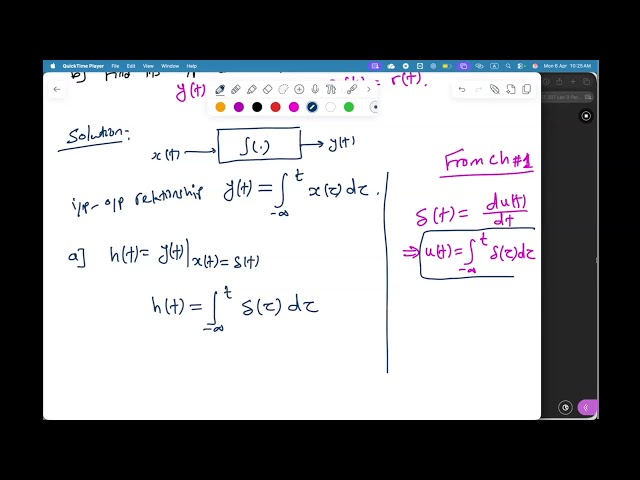 QuickTime Player File Edit View Window Help
Mon 6 Apr 10:25 AM
b] Find its
y(t) = r(t).
Solution:
x(t) → ∫(.) → y(t)
i/p-o/p relationship y(t) = ∫_{-∞}^{t} x(τ) dτ.
a] h(t) = y(t)|_{x(t) = δ(t)}
h(t) = ∫_{-∞}^{t} δ(τ) dτ
From ch#1
δ(t) = du(t)/dt
⇒ u(t) = ∫_{-∞}^{t} δ(τ)dτ